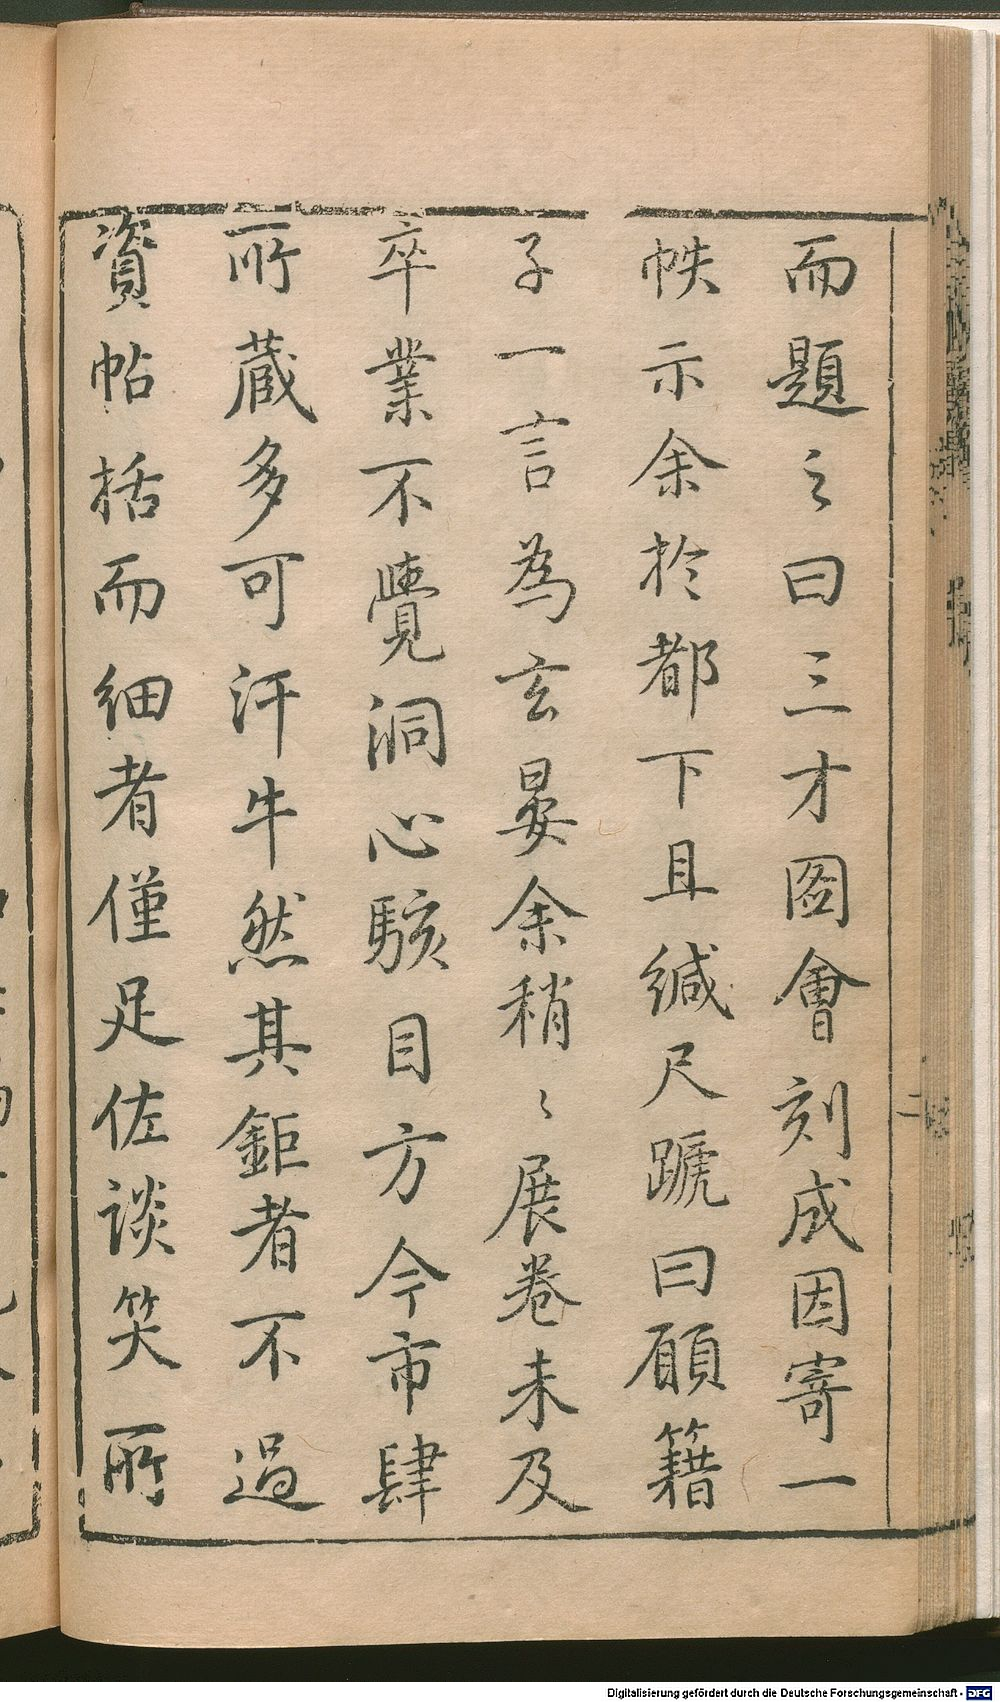 而題之曰三才圖會刻成因寄一
帙示余於都下且緘尺蹏曰願籍
子一言為玄晏余稍〻展卷未及
卒業不覺洞心駭目方今市肆
所蔵多可汗牛然其鉅者不過
資帖括而細者僅足佐談笑所
二
Digitalisierung gefördert durch die Deutsche Forschungsgemeinschaft - DFG